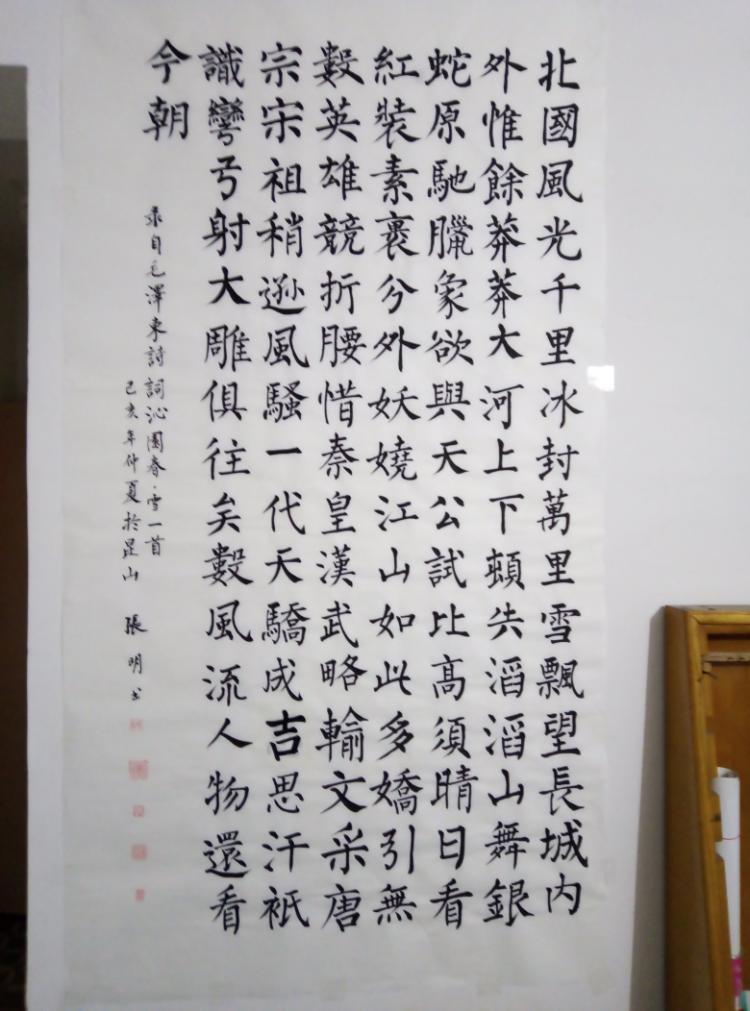 北國風光千里冰封萬里雪飄望長城内
外惟餘莽莽大河上下頓失滔滔山舞銀
蛇原馳臘象欲與天公試比高須晴日看
紅裝素裹分外妖嬈江山如此多嬌引無
數英雄競折腰惜秦皇漢武略輸文采唐
宗宋祖稍遜風騷一代天驕成吉思汗祇
識彎弓射大雕俱往矣數風流人物還看
今朝
录自毛澤東詩詞沁園春·雪一首
己亥年仲夏於昆山 張明书